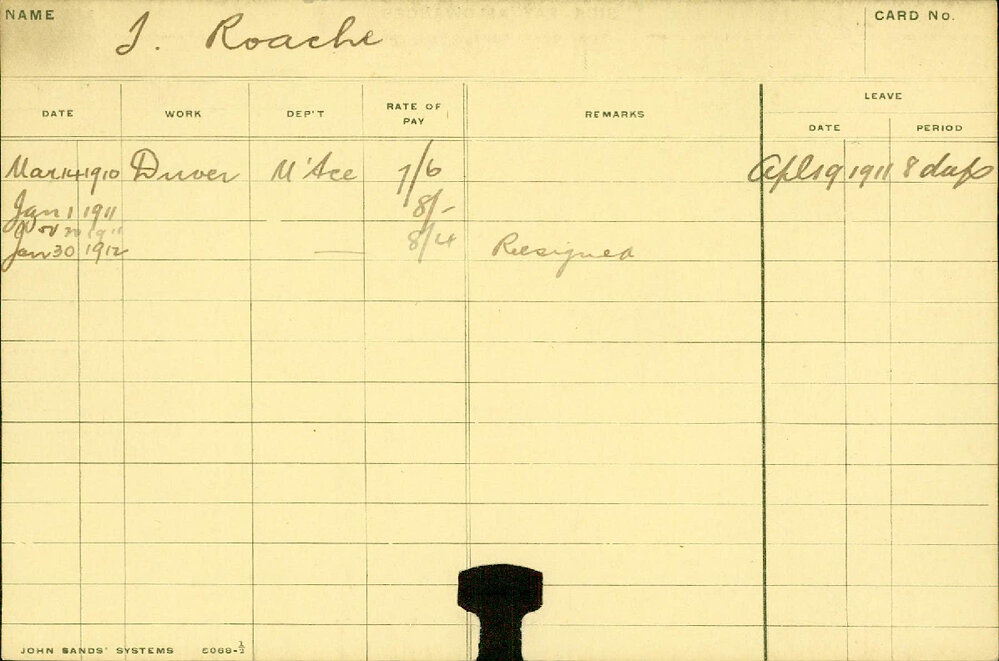 NAME
J. Roache
CARD No.
DATE WORK DEP'T RATE OF PAY REMARKS LEAVE
DATE PERIOD
Mar 14 1910 Driver M'Ace 7/6 Apl 19 1911 8 days
Jan 1 1911 8/-
Nov 20 1911 8/4
Jan 30 1912 — Resigned
JOHN SANDS' SYSTEMS 5068-½